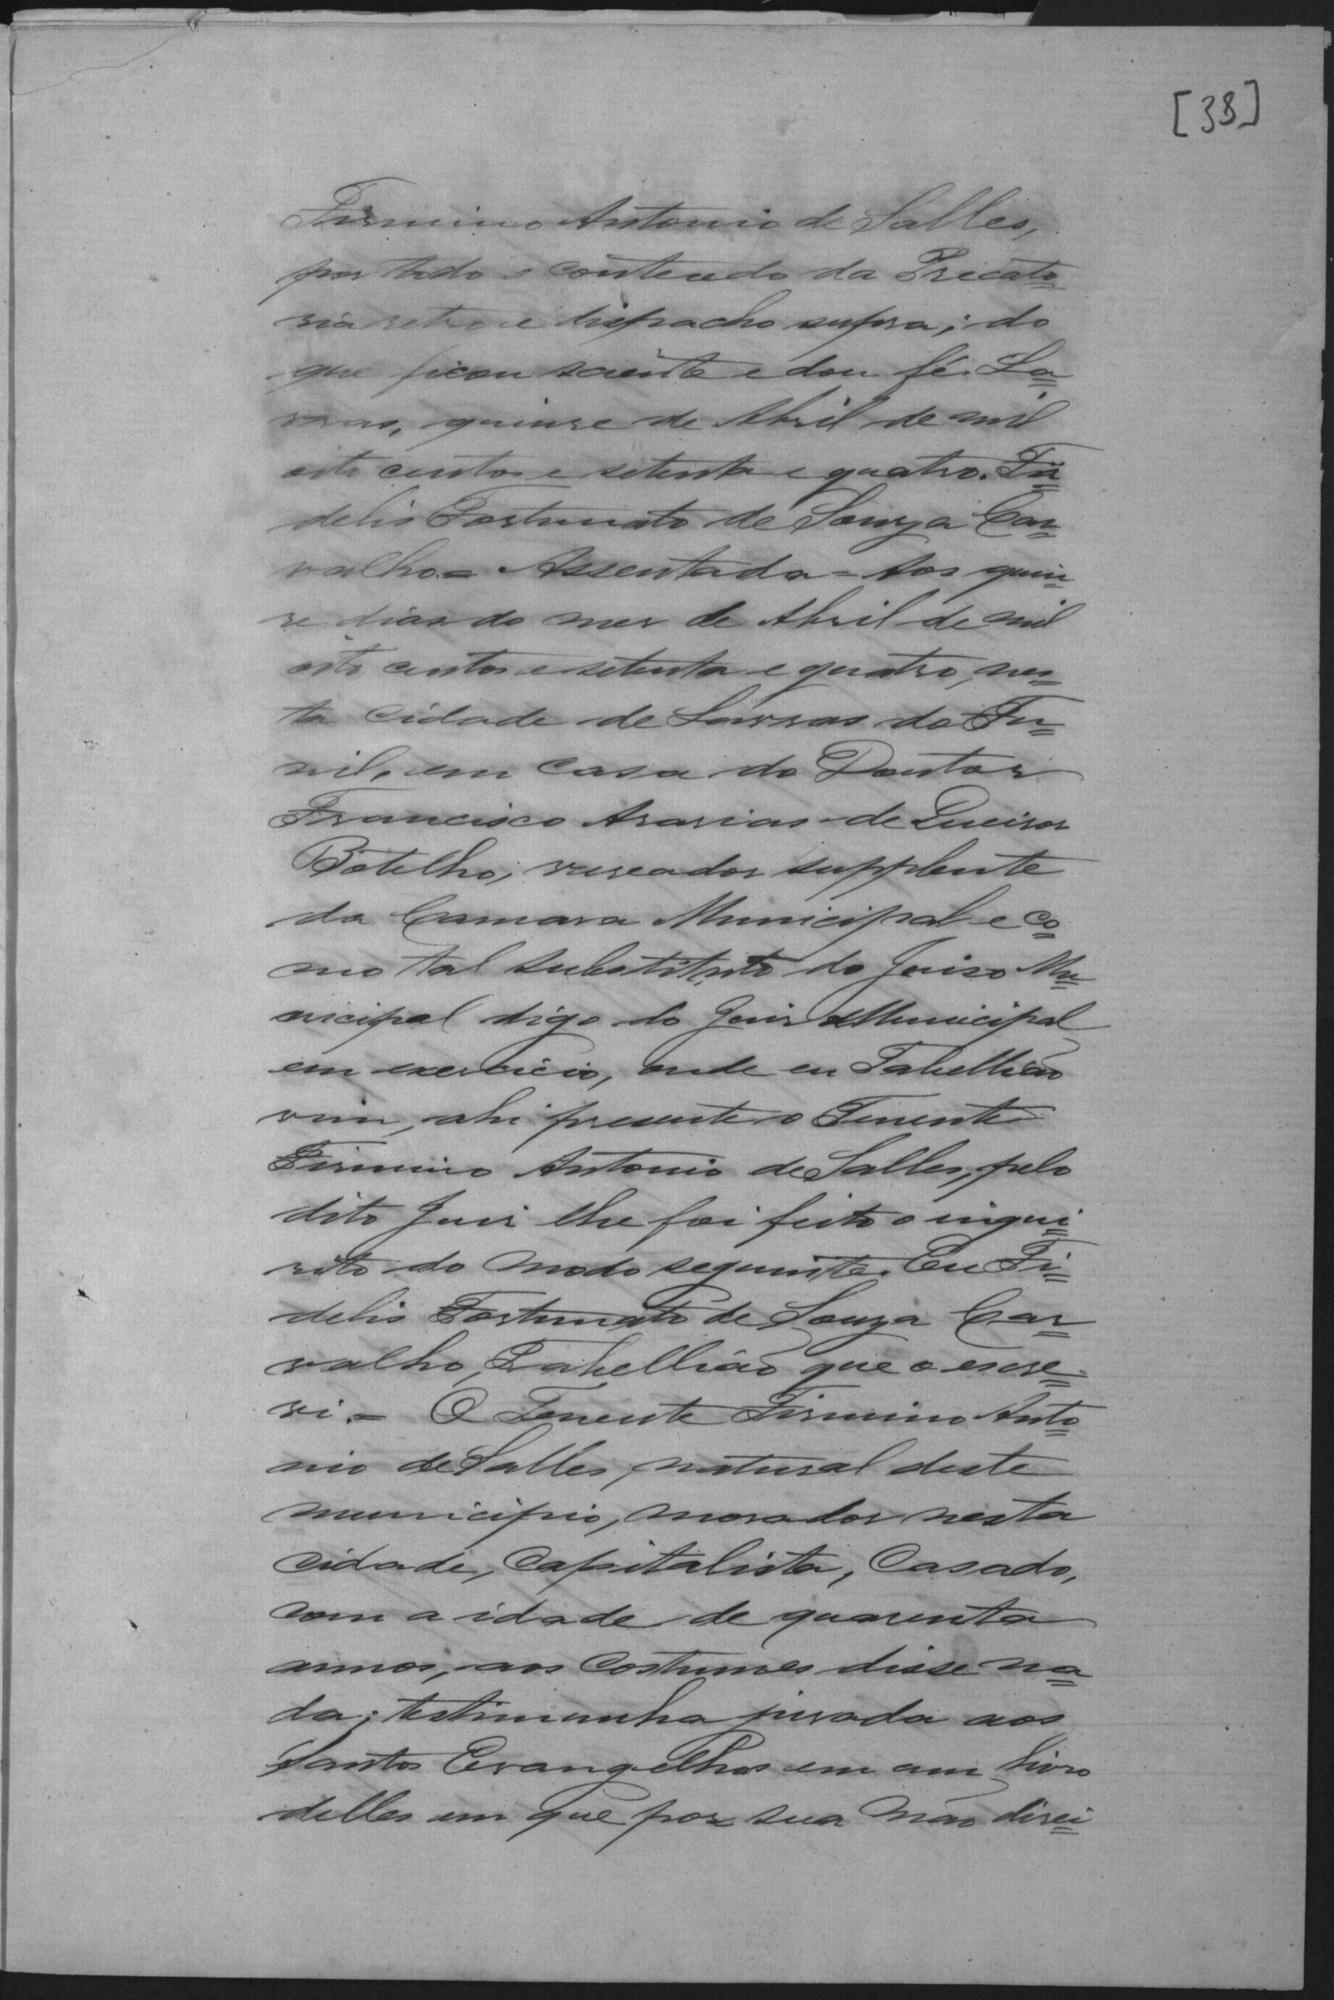 [38]
Firmino Antonio de Salles,
por todo o conteudo da Precato=
ria retro e dispacho supra; do
que ficou sciente e dou fé. La=
vras, quinse de Abril de mil
oito centos e setenta e quatro. Fi=
delis Fortunato de Souza Car=
valho = Assentada = Aos quin=
se dias do mes de Abril de mil
oito centos e setenta e quatro, nes=
ta cidade de Lavras do Fu=
nil, em casa do Doutor
Francisco Asarias de Queiros
Botelho, vereador supplente
da Camara Municipal e co=
mo tal substituto do Juiso Mu=
nicipal digo do Juis Municipal
em exercicio, onde eu Tabellião
vim, ahi presente o Tenente
Firmino Antonio de Salles, pelo
dito Juis lhe foi feito o inque=
rito do modo seguinte. Eu Fi=
delis Fortunato de Souza Car=
valho, Tabellião que o escre=
vi. = O Tenente Firmino Anto=
nio de Salles, natural deste
municipio, morador nesta
cidade, Capitalista, Casado,
com a idade de quarenta
annos, aos costumes disse na=
da; testimunha jurada aos
Santos Evangelhos em um livro
delles em que pos sua mão direi=